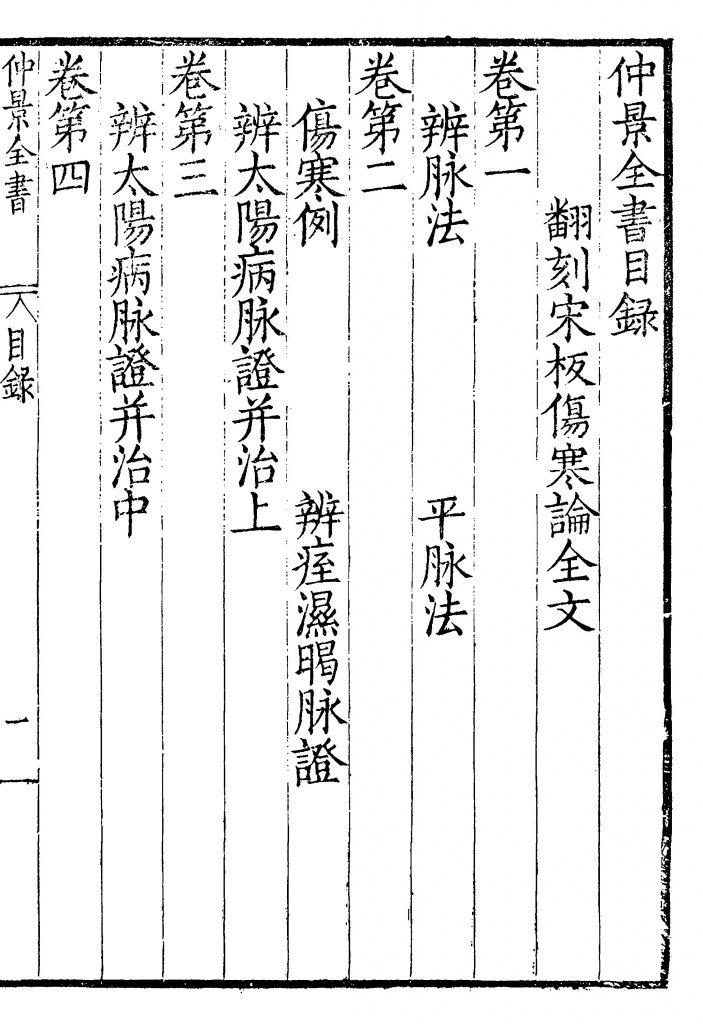 仲景全書目録
翻刻宋板傷寒論全文
卷第一
辨脉法　平脉法
卷第二
傷寒例　辨痓濕暍脉證
辨太陽病脉證并治上
卷第三
辨太陽病脉證并治中
卷第四
仲景全書　目録　一